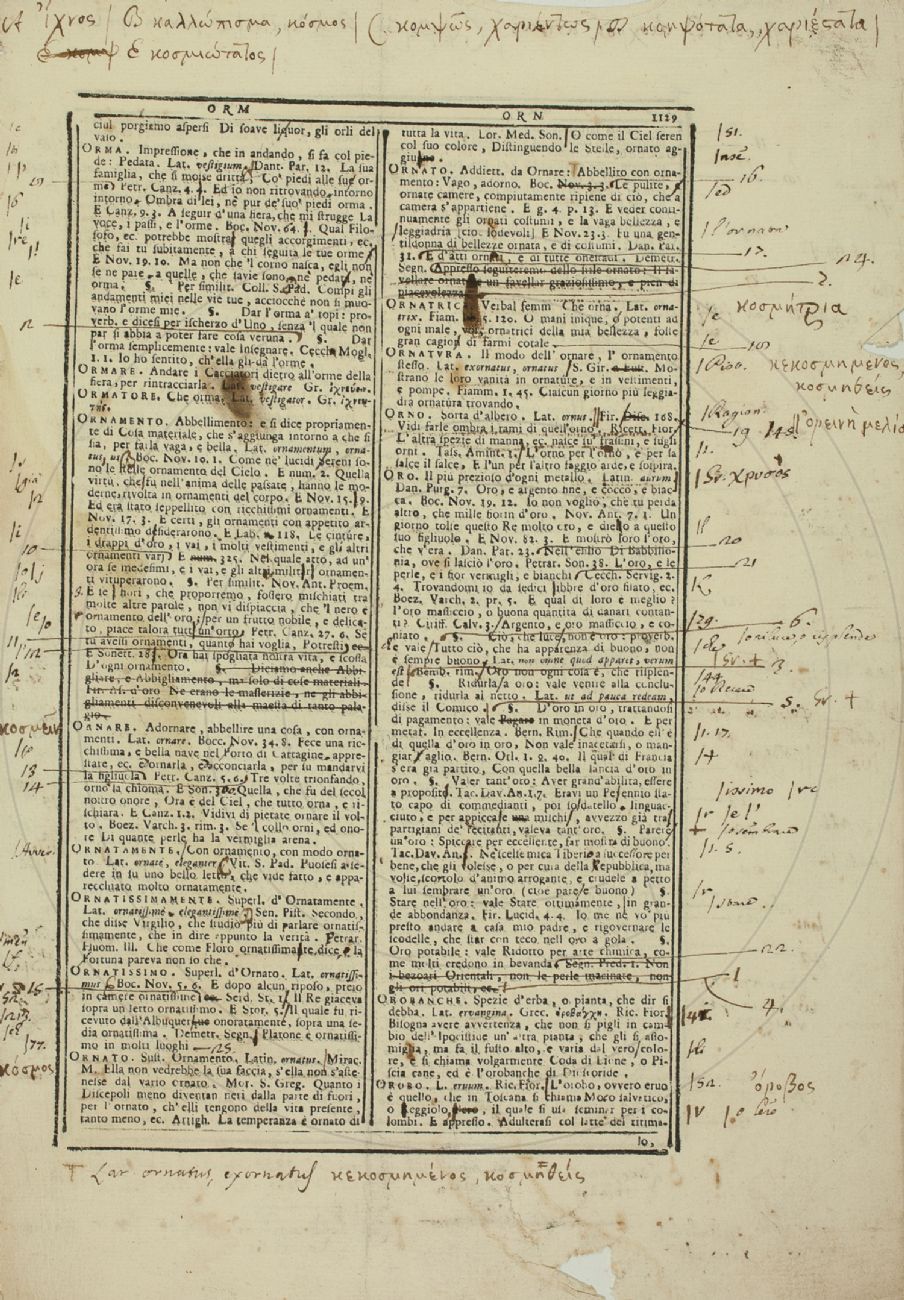 A ἴχνος | B καλλώπισμα, κόσμος | C κομψῶς, χαριέντως | D κομψότατα, χαριέστατα |
E κοσμιώτατος |
ORM
ORN 1129
ciul porgiamo aspersi Di soave liquor, gli orli del
vaso.
ORMA. Impressione, che in andando, si fa col pie-
de: Pedata. Lat. vestigium. Dant. Par. 12. La sua
famiglia, che si mosse dritta Co' piedi alle su' or-
me Petr. Canz. 4. 4. Ed io non ritrovando intorno
intorno Ombra di lei, nè pur de' suo' piedi orma.
E Canz. 9. 3. A seguir d'una fiera, che mi strugge La
voce, i passi, e l'orme. Boc. Nov. 64. Qual Filo-
sofo, ec. potrebbe mostrar quegli accorgimenti, ec.
che fai tu subitamente, a chi seguita le tue orme
E Nov. 19. 10. Ma non che 'l corno nasca, egli non
se ne pare a quelle, che savie sono, nè pedata, nè
orma. §. Per similit. Coll. S. Pad. Compi gli
andamenti miei nelle vie tue, acciocchè non si muo-
van l'orme mie. §. Dar l'orma a' topi: pro-
verb. e dicesi per ischerzo d'Uno, senza 'l quale non
par si abbia a poter fare cosa veruna. §. Dar
l'orma semplicemente: vale Insegnare. Cecch. Mogl.
1. 1. Io ho sentito, ch'ella gli dà l'orme.
ORMARE. Andare i Cacciatori dietro all'orme della
fiera, per rintracciarla. Lat. vestigare Gr. ἰχνεύειν.
ORMATORE. Che orma. Lat. vestigator. Gr. ἰχνευ-
τής.
ORNAMENTO. Abbellimento: e si dice propriamen-
te di Cosa materiale, che s'aggiunga intorno a che si
sia, per farla vaga, e bella. Lat. ornamentum, orna-
tus, us. Boc. Nov. 10. 1. Come ne' lucidi sereni so-
no le stelle ornamento del Cielo. E num. 2. Quella
virtù, che fu nell'anima delle passate, hanno le mo-
derne, rivolta in ornamenti del corpo. E Nov. 15. 19.
Ed era stato seppellito con ricchissimi ornamenti. E
Nov. 17. 3. E certi, gli ornamenti con appetito ar-
dentissimo desiderarono. E Lab. n. 118. Le cinture,
i drappi d'oro, i vai, i molti vestimenti, e gli altri
ornamenti varj E num. 325. Nel quale atto, ad un'
ora se medesimi, e i vai, e gli altri militari ornamen-
ti vituperarono. §. Per similit. Nov. Ant. Proem.
E se i fiori, che proporremo, fossero mischiati tra
molte altre parole, non vi dispiaccia, che 'l nero è
ornamento dell'oro, per un frutto nobile, e delica-
to, piace talora tutt'un'orto. Petr. Canz. 27. 6. Se
tu avessi ornamenti, quanto hai voglia, Potresti, ec.
E Sonett. 285. Ora hai spogliata nostra vita, e scossa
D'ogni ornamento. §. Diciamo anche Abbi-
gliare, e Abbigliamento, ma solo di cose materiali.
Fir. As. d'oro Ne erano le masserizie, ne gli abbi-
gliamenti disconvenevoli alla maestà di tanto pala-
gio.
ORNARE. Adornare, abbellire una cosa, con orna-
menti. Lat. ornare. Bocc. Nov. 34. 8. Fece una ric-
chissima, e bella nave nel Porto di Cartagine appre-
stare, ec. e ornarla, e acconciarla, per su mandarvi
la figliuola. Petr. Canz. 5. 6. Tre volte trionfando,
ornò la chioma. E Son. Quella, che fu del secol
nostro onore, Ora è del Ciel, che tutto orna, e ri-
schiara. E Canz. 12. Vidivi di pietate ornare il vol-
to. Boez. Varch. 3. rim. 3. Se 'l collo orni, ed ono-
re Di quante perle ha la vermiglia arena.
ORNATAMENTE. Con ornamento, con modo orna-
to. Lat. ornatè, eleganter. Vit. S. Pad. Puosesi a se-
dere in su uno bello letto, che vide fatto, e appa-
recchiato molto ornatamente.
ORNATISSIMAMENTE. Superl. d'Ornatamente.
Lat. ornatissimè, elegantissimè. Sen. Pist. Secondo,
che disse Virgilio, che studiò più di parlare ornatis-
simamente, che in dire appunto la verità. Petrar.
Huom. Ill. Che come Floro ornatissimamente dice, la
Fortuna pareva non so che.
ORNATISSIMO. Superl. d'Ornato. Lat. ornatissi-
mus Boc. Nov. 5. 6. E dopo alcun riposo, preso
in camere ornatissime, ec. Serd. St. 1. Il Re giaceva
sopra un letto ornatissimo. E Stor. 5. Il quale fu ri-
cevuto dall'Albuquerque onoratamente, sopra una se-
dia ornatissima. Demetr. Segn. Platone è ornatissi-
mo in molti luoghi
ORNATO. Sust. Ornamento. Latin. ornatus. Mirac.
M. Ella non vedrebbe la sua faccia, s'ella non s'aste-
nesse dal vario ornato. Mor. S. Greg. Quanto i
Discepoli meno diventan neri dalla parte di fuori,
per l'ornato, ch'elli tengono della vita presente,
tanto meno, ec. Arrigh. La temperanza è ornato di
tutta la vita. Lor. Med. Son. O come il Ciel seren
col suo colore, Distinguendo le Stelle, ornato ag-
giugne.
ORNATO. Addiett. da Ornare: Abbellito con orna-
mento: Vago, adorno. Boc. Nov. 3. 3. Le pulite,
ornate camere, compiutamente ripiene di ciò, che a
camera s'appartiene. E g. 4. p. 13. E veder conti-
nuamente gli ornati costumi, e la vaga bellezza, e
leggiadria [cioè lodevoli] E Nov. 23. 3. Fu una gen-
tildonna di bellezze ornata, e di costumi. Dan. Par.
31. E d'atti ornati, e di tutte onestadi. Demetr.
Segn. Appresso seguiteremo dello stile ornato: Il fa-
vellare ornato è un favellar graziosissimo, e pien di
piacevolezza.
ORNATRICE. Verbal femm. Che orna. Lat. orna-
trix. Fiam. 5. 120. O mani inique, o potenti ad
ogni male, voi ornatrici della mia bellezza, foste
gran cagion di farmi cotale.
ORNATURA. Il modo dell'ornare, l'ornamento
stesso. Lat. exornatus, ornatus. S. Gir. Mo-
strano le loro vanità in ornature, e in vestimenti,
e pompe. Fiamm. 1. 45. Ciaicun giorno più leggia-
dra ornatura trovando.
ORNO. Sorta d'albero. Lat. ornus. Fir. Disc. 108.
Vidi farle ombra i rami di quell'orno. Ricett. Fior.
L'altra spezie di manna, ec. nasce in frassini, e sugli
orni. Tass. Amint. 1. L'orno per l'orno, e per sa
salce il salce, E l'un per l'altro faggio arde, e sospira.
ORO. Il più prezioso d'ogni metallo. Latin. aurum
Dan. Purg. 7. Oro, e argento fine, e cocco, e biac-
ca. Boc. Nov. 19. 12. Io non voglio, che tu perda
altro, che mille fiorin d'oro. Nov. Ant. 7. 1. Un
giorno tolse questo Re molto oro, e diello a questo
suo figliuolo. E Nov. 82. 3. E mostrò loro l'oro,
che v'era. Dan. Par. 23. Nell'esilio Di Babbillo-
nia, ove si lasciò l'oro. Petrar. Son. 38. L'oro, e le
perle, e i fior vermigli, e bianchi. Cecch. Servig. 2.
4. Trovandomi io da sedici libbre d'oro filato, ec.
Boez. Varch. 2. pr. 5. E qual di loro è meglio?
l'oro massiccio, o buona quantità di danari contan-
ti? Ciriff. Calv. 3. Argento, e oro massiccio, e co-
niato §. Ciò, che luce, non è oro: proverb.
e vale Tutto ciò, che ha apparenza di buono, non
è sempre buono. Lat. non omne quod apparet, verum
est Bernb. rim. Oro non ogni cosa è, che risplen-
de §. Ridursi a oro: vale venire alla conclu-
sione, ridurla al netto. Lat. ut ad pauca redeam,
disse il Comico. §. D'oro in oro, trattandosi
di pagamento: vale Pagare in moneta d'oro. E per
metaf. In eccellenza. Bern. Rim. Che quando est'è
di quella d'oro in oro, Non vale inacetarsi, o man-
giar l'aglio. Bern. Orl. 1. 2. 40. Il qual di Francia
s'era già partito, Con quella bella lancia d'oro in
oro. §. Valer tant'oro: Aver grand'abilità, essere
a proposito. Tac. Dav. An. 1. 7. Eravi un Pesennio sta-
to capo di commedianti, poi soldatello linguac-
ciuto, e per appiccare una mischi, avvezzo già tra
partigiani de' recitanti, valeva tant'oro. §. Parere
un'oro: Spiccare per eccellente, far mostra di buono.
Tac. Dav. An. Nè scelse mica Tiberio a successore per
bene, che gli volesse, o per cura della Repubblica, ma
volle, scortolo d'animo arrogante, e crudele a petto
a lui sembrare un'oro. (cioè parere buono) §.
Stare nell'oro: vale Stare ottimamente, in gran-
de abbondanza. Fir. Lucid. 4. 4. Io me ne vo' più
presto andare a casa mio padre, e rigovernare le
scodelle, che star con teco nell'oro a gola. §.
Oro potabile: vale Ridotto per arte chimica, co-
me molti credono in bevanda. Segn. Pred. 1. Non
i bezoari Orientali, non le perle macinate, non
gli ori potabili, ec.
OROBANCHE. Spezie d'erba, o pianta, che dir si
debba. Lat. ervangina. Grec. ὀροβάγχη. Ric. Fior.
Bisogna avere avvertenza, che non si pigli in cam-
bio dell'Ipocistide un'altra pianta, che gli si asso-
miglia, ma fa il fusto alto, e varia dal vero colo-
re, e si chiama volgarmente Coda di Lione, o Pi-
scia cane, ed è l'orobanche di Dioscoride.
OROBO. L. ervum. Ric. Fior. L'orobo, ovvero ervo
è quello, che in Toscana si chiama Moco salvatico,
o Leggiolo, il quale si usa seminar per i co-
lombi. E appresso. Adulterasi col latte del titima-
lo,
κοσμήτρια
κεκοσμημένος,
κοσμηθείς
ὀρεινὴ μελία
Gr. χρυσός
ὄροβος
κοσμεῖν
κόσμος
16
17.
24.
2.
19
20
21
6.
3.
5. Gr. +
22
1
4.
10
11
13
14
15
25
† Lat ornatus, exornatus κεκοσμημένος, κοσμηθείς